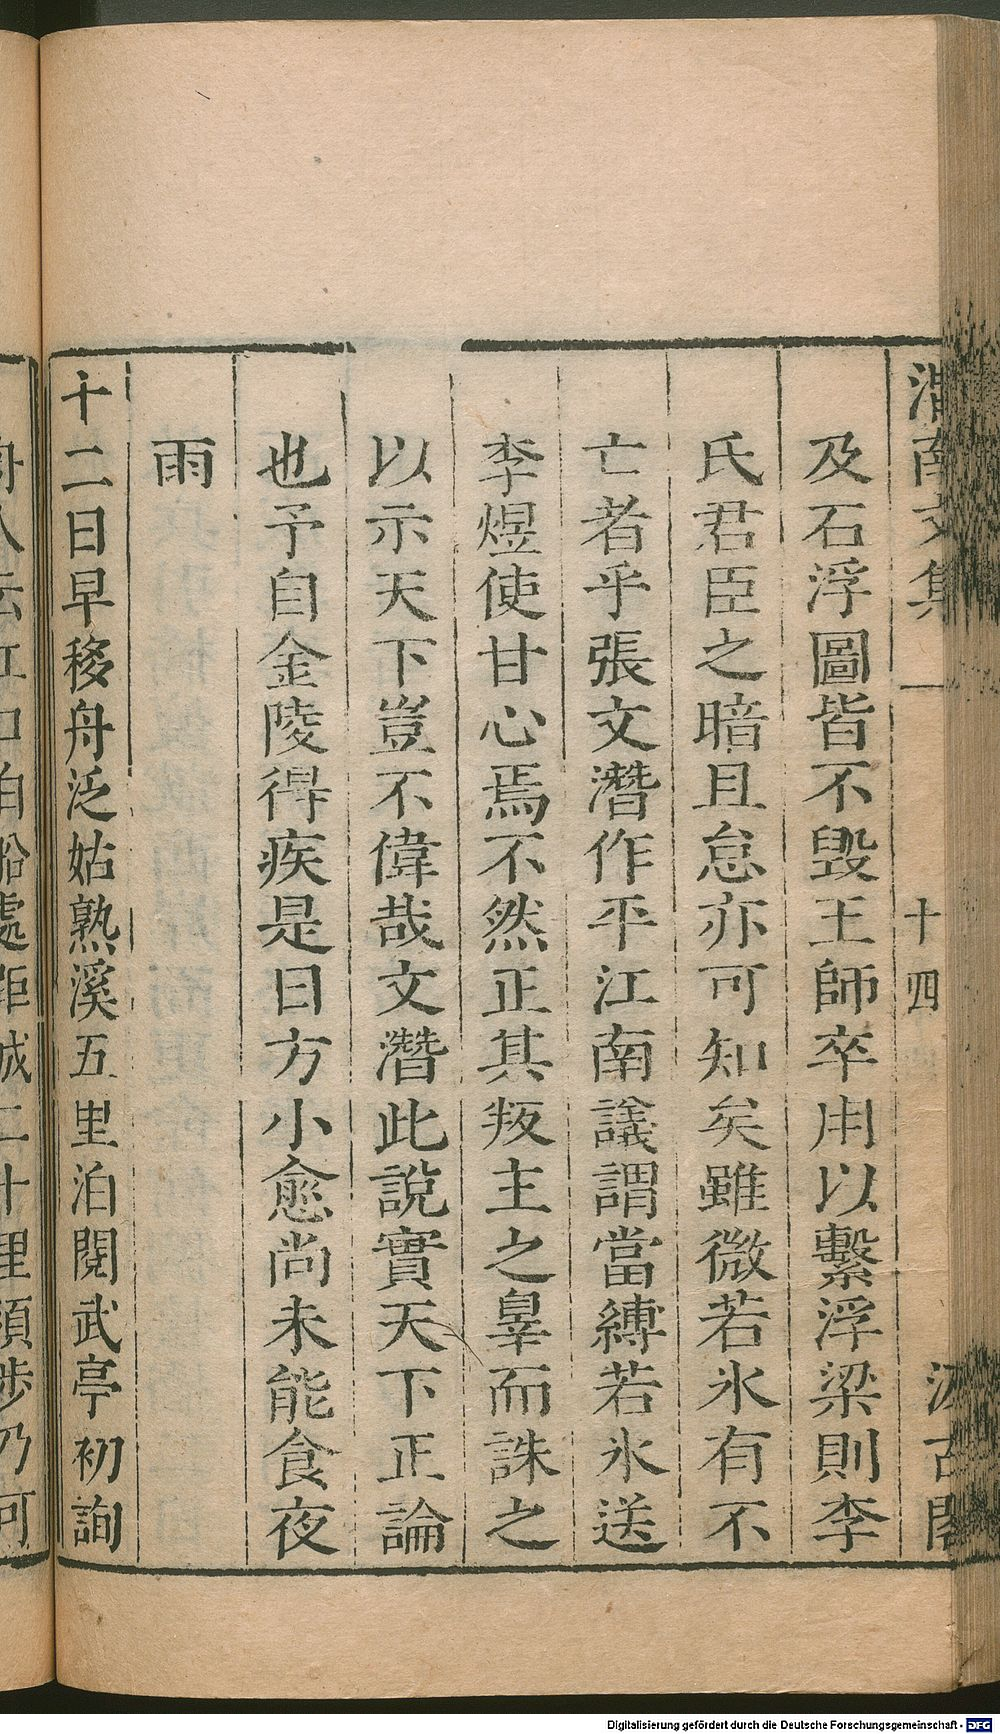 渭南文集 十四 汲古閣
及石浮圖皆不毀王師卒用以繫浮梁則李
氏君臣之暗且怠亦可知矣雖微若氷有不
亡者乎張文潛作平江南議謂當縛若氷送
李煜使甘心焉不然正其叛主之辠而誅之
以示天下豈不偉哉文潛此說實天下正論
也予自金陵得疾是日方小愈尚未能食夜
雨
十二日早移舟泛姑熟溪五里泊閱武亭初詢
舟人云江口泊船處距城二十里須步乃可
Digitalisierung gefördert durch die Deutsche Forschungsgemeinschaft - DFG